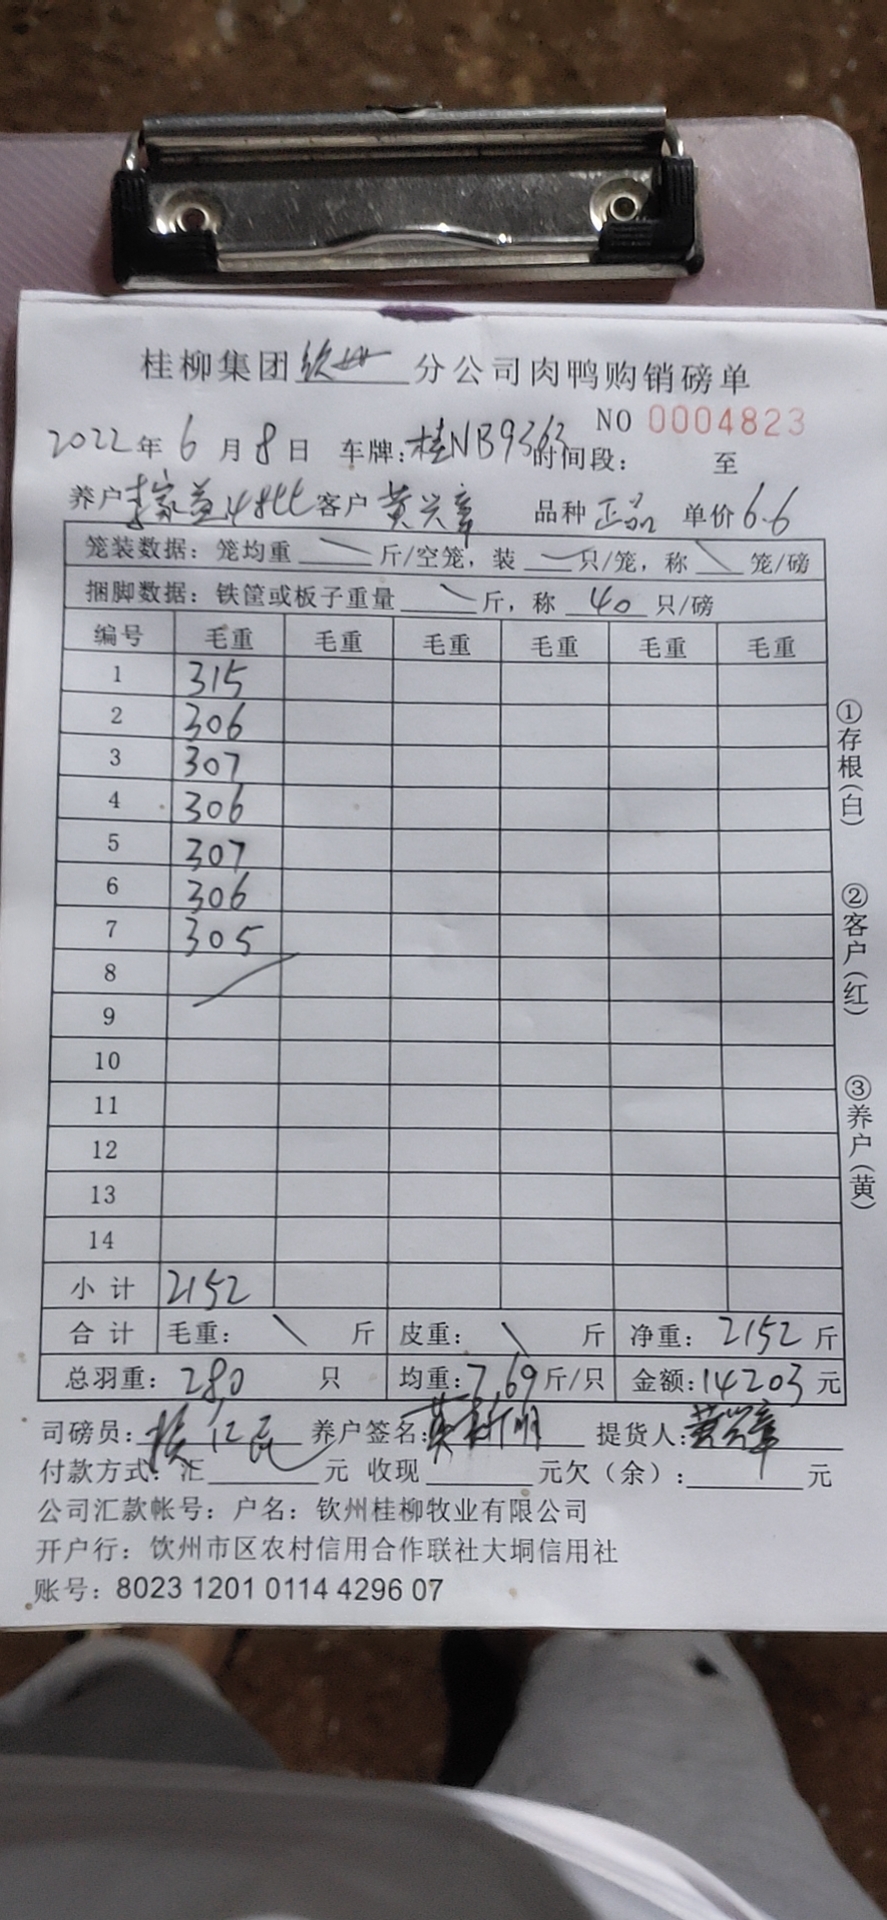 桂柳集团钦州分公司肉鸭购销磅单
NO 0004823
2022年6月8日 车牌:桂NB9363 时间段: 至
养户李家益48批 客户黄兴章 品种正品 单价6.6
笼装数据:笼均重 \ 斤/空笼,装 \ 只/笼,称 \ 笼/磅
捆脚数据:铁筐或板子重量 \ 斤,称 40 只/磅
编号 毛重 毛重 毛重 毛重 毛重 毛重
1 315
2 306
3 307
4 306
5 307
6 306
7 305
8
9
10
11
12
13
14
小计 2152
合计 毛重: \ 斤 皮重: \ 斤 净重: 2152 斤
总羽重: 280 只 均重:7.69斤/只 金额:14203元
司磅员: 养户签名: 提货人:黄兴章
付款方式:汇 元 收现 元欠(余): 元
公司汇款帐号:户名:钦州桂柳牧业有限公司
开户行:饮州市区农村信用合作联社大垌信用社
账号:8023 1201 0114 4296 07
①存根(白)
②客户(红)
③养户(黄)